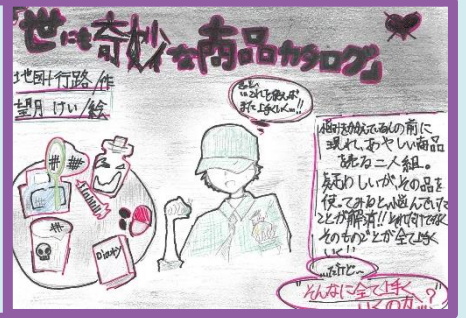 『世にも奇妙な商品カタログ』
地図十行路/作
望月けい/絵
Diary
悩みをかかえている人の前に
現れ、あやしい商品
を売る二人組。
その品を
使ってみると、悩んでいた
ことが解消!!それだけでなく
そのものごとが全て上手く
いく!!
…だけど…
"そんなに全て上手く
いくのか…?"